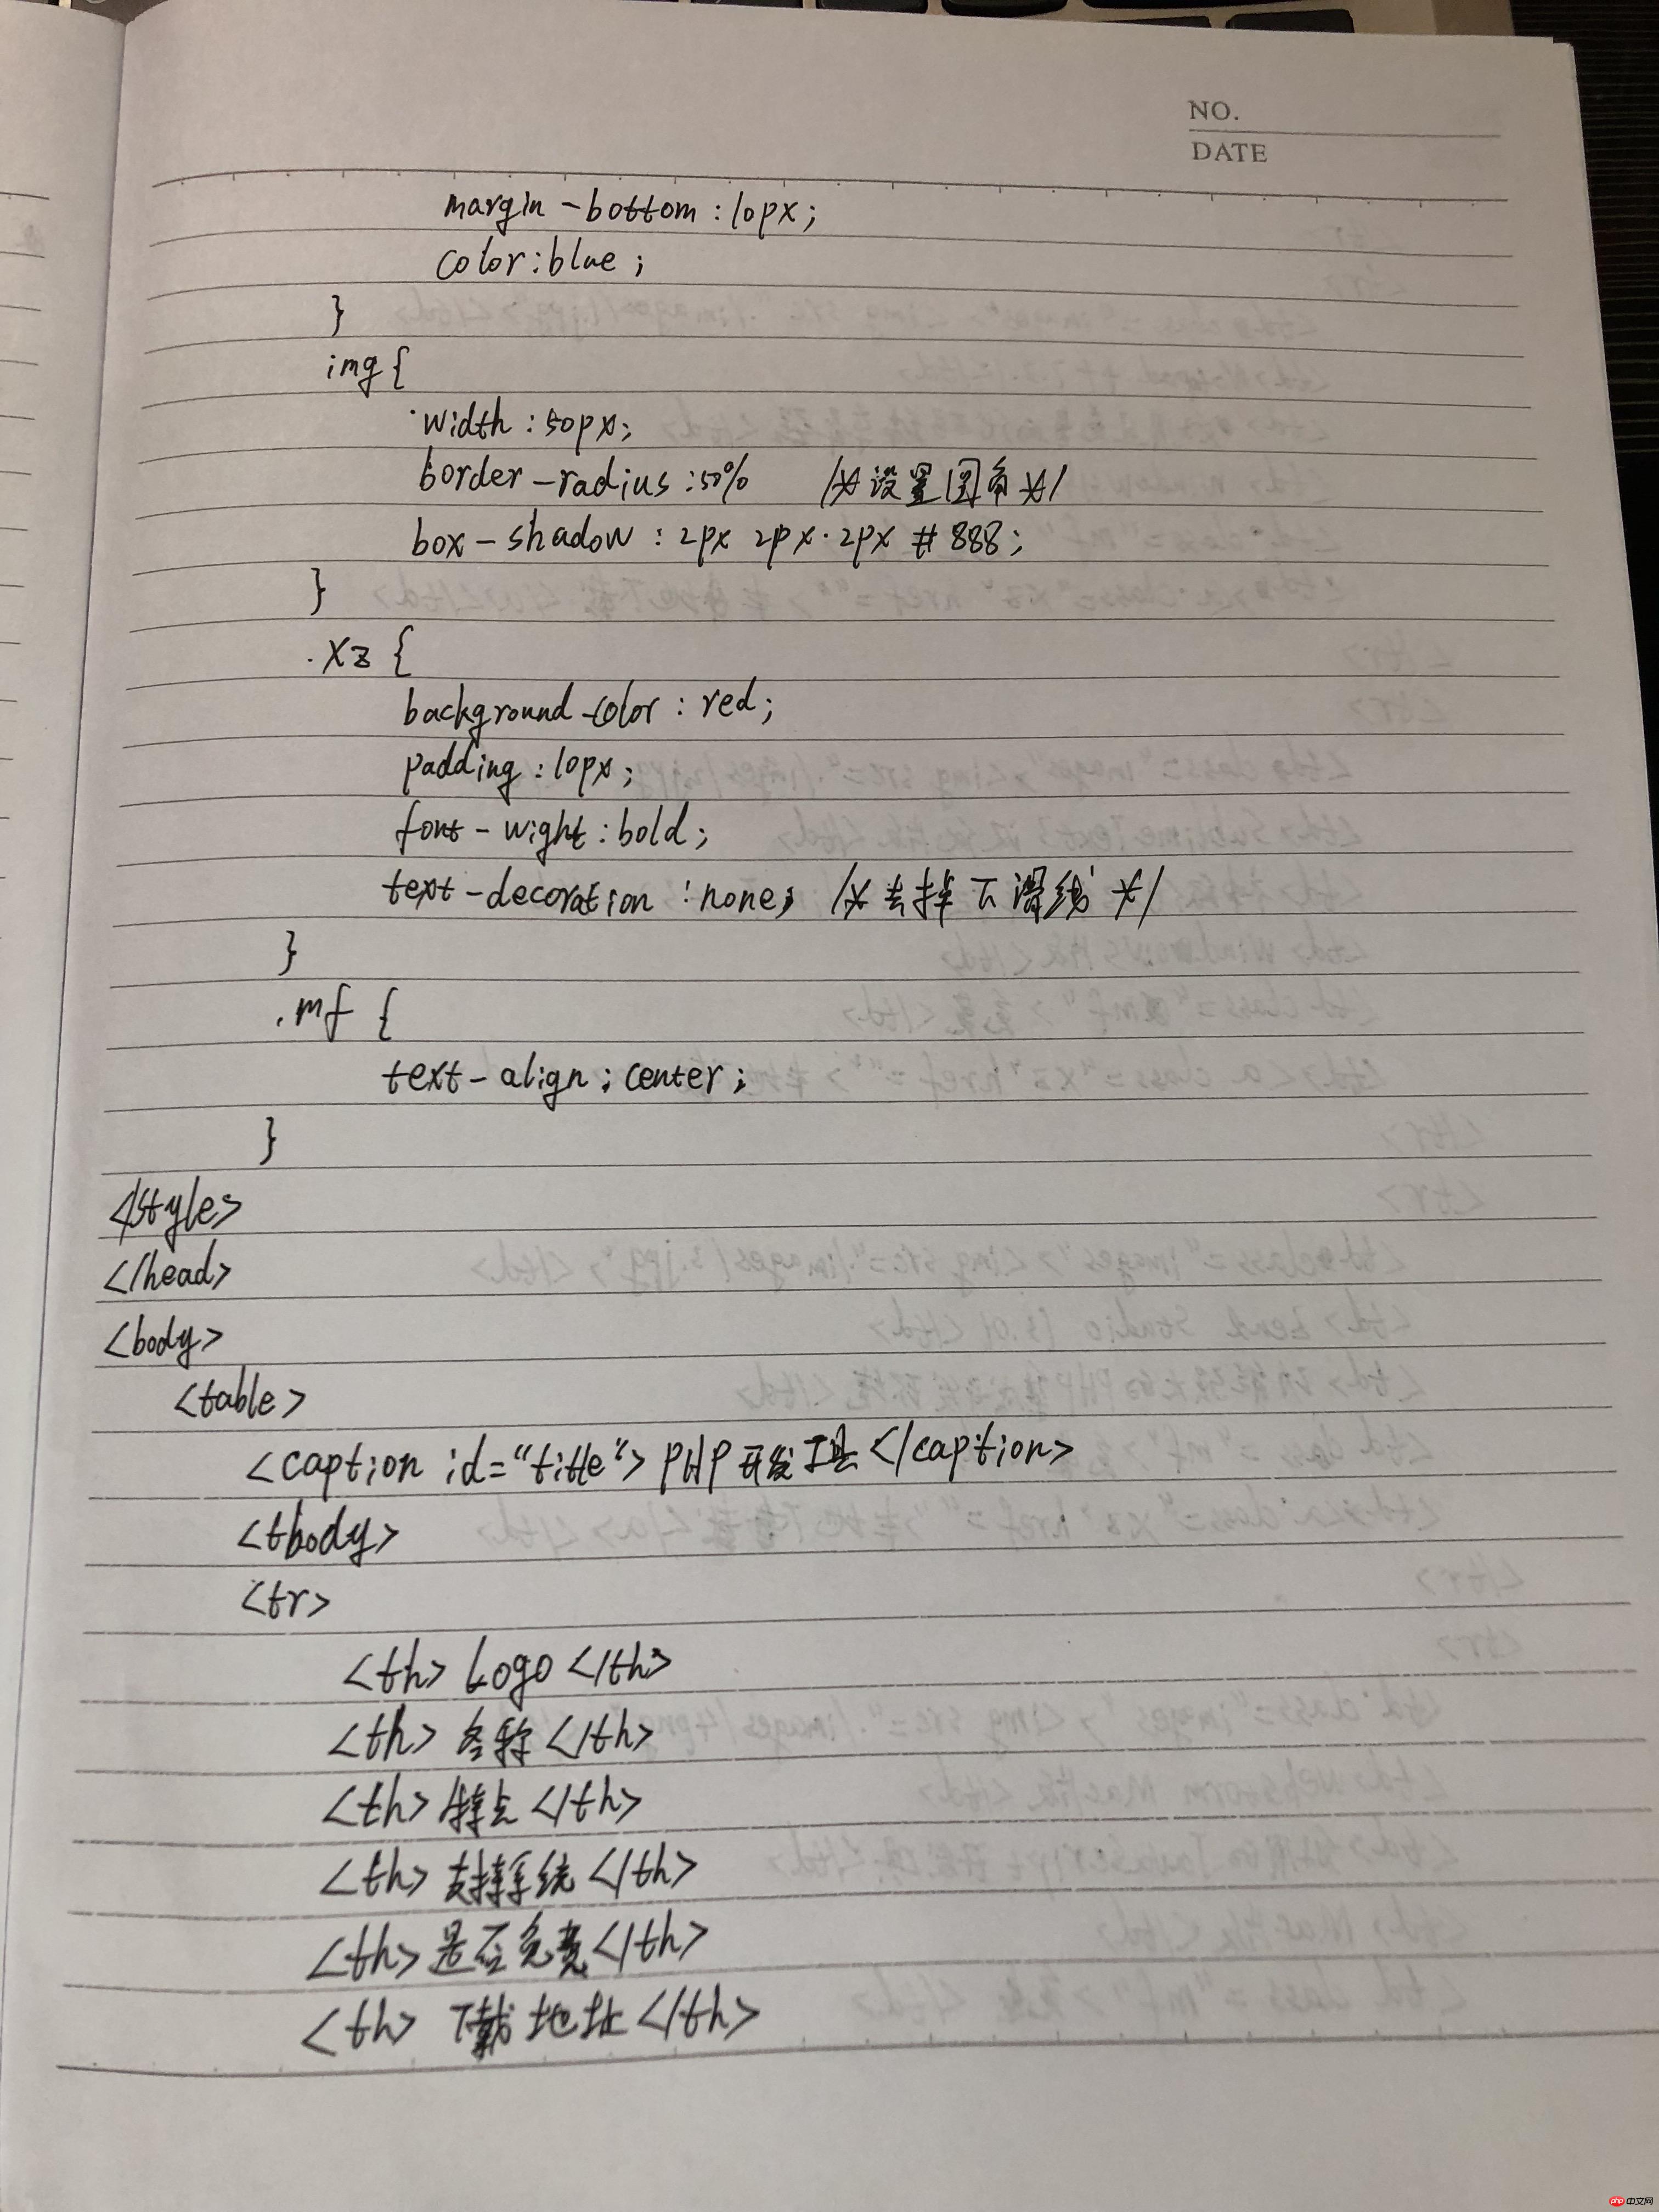 NO.
DATE
margin-bottom:10px;
color:blue;
}
img{
width:50px;
border-radius:50% /*设置圆角*/
box-shadow:2px 2px 2px #888;
}
.xz {
background-color:red;
padding:10px;
font-wight:bold;
text-decoration:none; /*去掉下滑线*/
}
.mf {
text-align;center;
}
</style>
</head>
<body>
<table>
<caption id="title">PHP开发工具</caption>
<tbody>
<tr>
<th>Logo</th>
<th>名称</th>
<th>特点</th>
<th>支持系统</th>
<th>是否免费</th>
<th>下载地址</th>
php 中文网